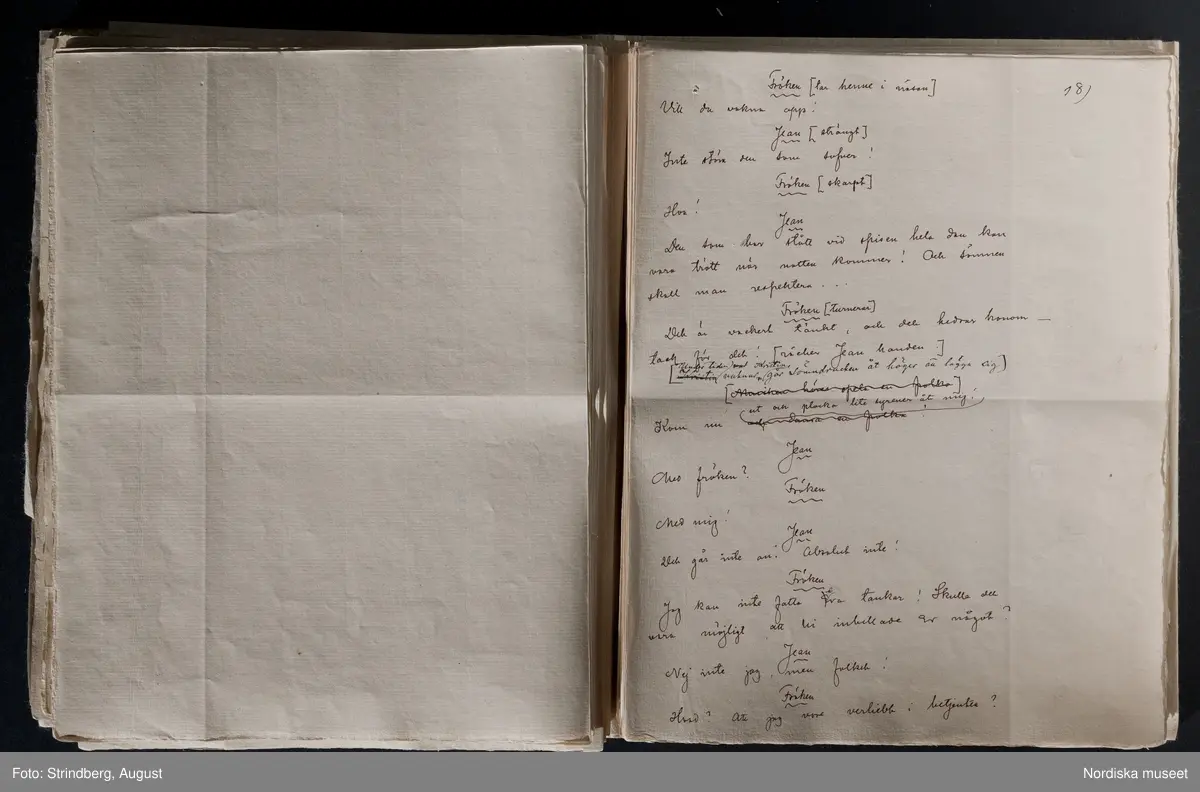 18)
Fröken [tar henne i näsan]
Vill du vakna opp!
Jean [strängt]
Inte störa den som sofver!
Fröken [skarpt]
Hva!
Jean
Den som har stått vid spisen hela dan kan
vara trött när natten kommer! Och sömnen
skall man respektera...
Fröken [turnerar]
Det är vackert tänkt, och det hedrar honom —
tack för det! [räcker Jean handen]
[Kristin vaknar, går sömndrucken åt höger att lägga sig]
[Musiken höres spela en polka]
ut och plocka lite syrener åt mig!
Kom nu och dansa en polka!
Jean
Med fröken?
Fröken
Med mig!
Jean
Det går inte an! Absolut inte!
Fröken
Jag kan inte fatta era tankar! Skulle det
vara möjligt att ni inbillade er något?
Jean
Nej inte jag, men folket!
Fröken
Hvad? Att jag vore verliebt i betjenten?
Foto: Strindberg, August
Nordiska museet